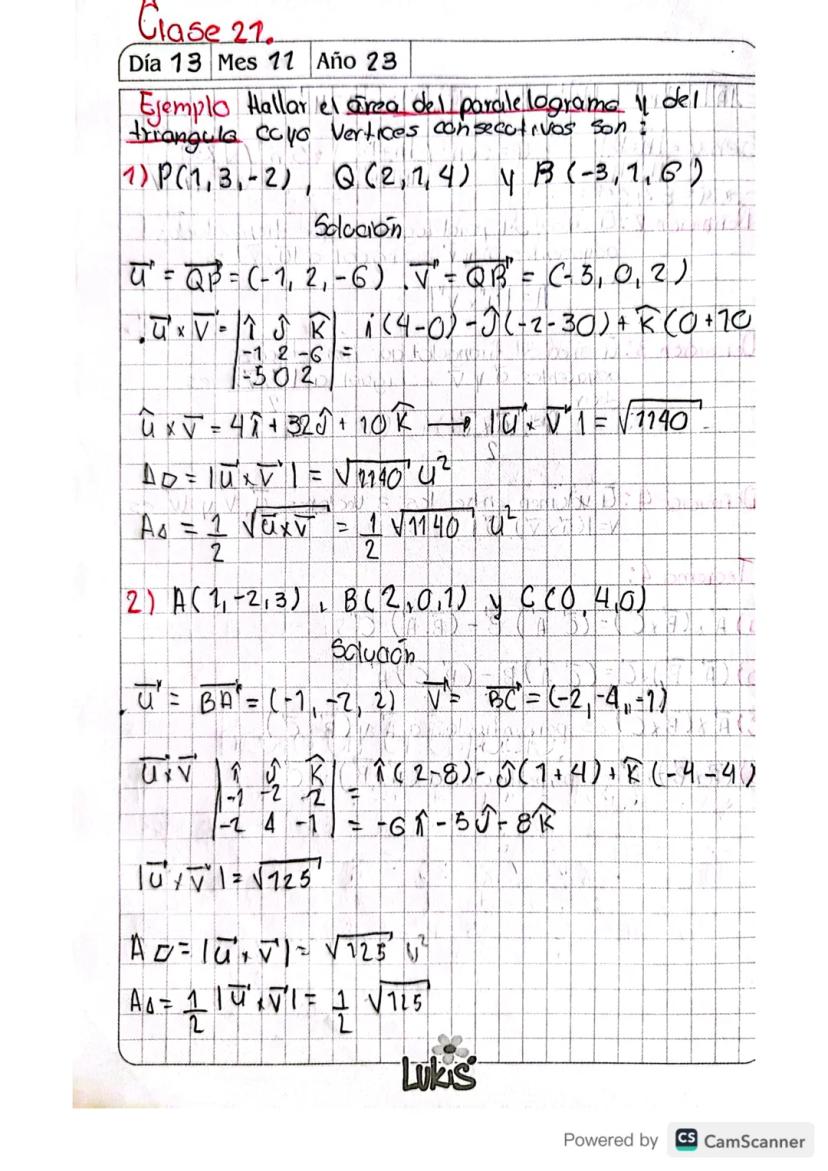 Clase 21.
Día 13 Mes 11 Año 23
Ejemplo Hallar el área del paralelogramo y del
triangulo cuyo vertices consecutivos son :
1) P(1, 3, -2) , Q (2, 1, 4) y B (-3, 1, 6)
Solución
u = QP = (-1, 2, -6) . v = QB = (-5, 0, 2)
. u × v = | î ĵ k̂ | i (4-0) - ĵ (-2-30) + k̂ (0+10
-1 2 -6 =
-5 0 2
û × v = 4î + 32ĵ + 10k̂ → |u × v| = √1140
A▱ = |u × v| = √1140 u²
A△ = 1/2 √u×v = 1/2 √1140 u²
2) A(1, -2, 3) , B(2, 0, 1) y C(0, 4, 0)
Solución
. u = BA = (-1, -2, 2) v = BC = (-2, -4, -1)
u × v | î ĵ k̂ | = î (2-8) - ĵ (1+4) + k̂ (-4-4)
-1 -2 2 =
-2 4 -1 = -6î - 5ĵ - 8k̂
|u × v| = √125
A▱ = |u × v| = √125 u²
A△ = 1/2 |u × v| = 1/2 √125
Lukis
Powered by CS CamScanner